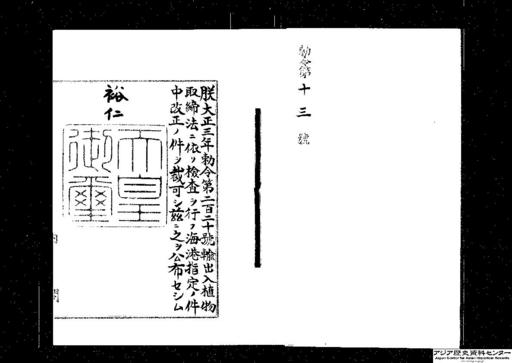 勅令第十三號
朕大正三年勅令第二百二十號輸出入植物
取締法ニ依リ檢査ヲ行フ海港指定ノ件
中改正ノ件ヲ裁可シ茲ニ之ヲ公布セシム
裕仁
天皇
御璽
内閣
アジア歴史資料センター
Japan Center for Asian Historical Records